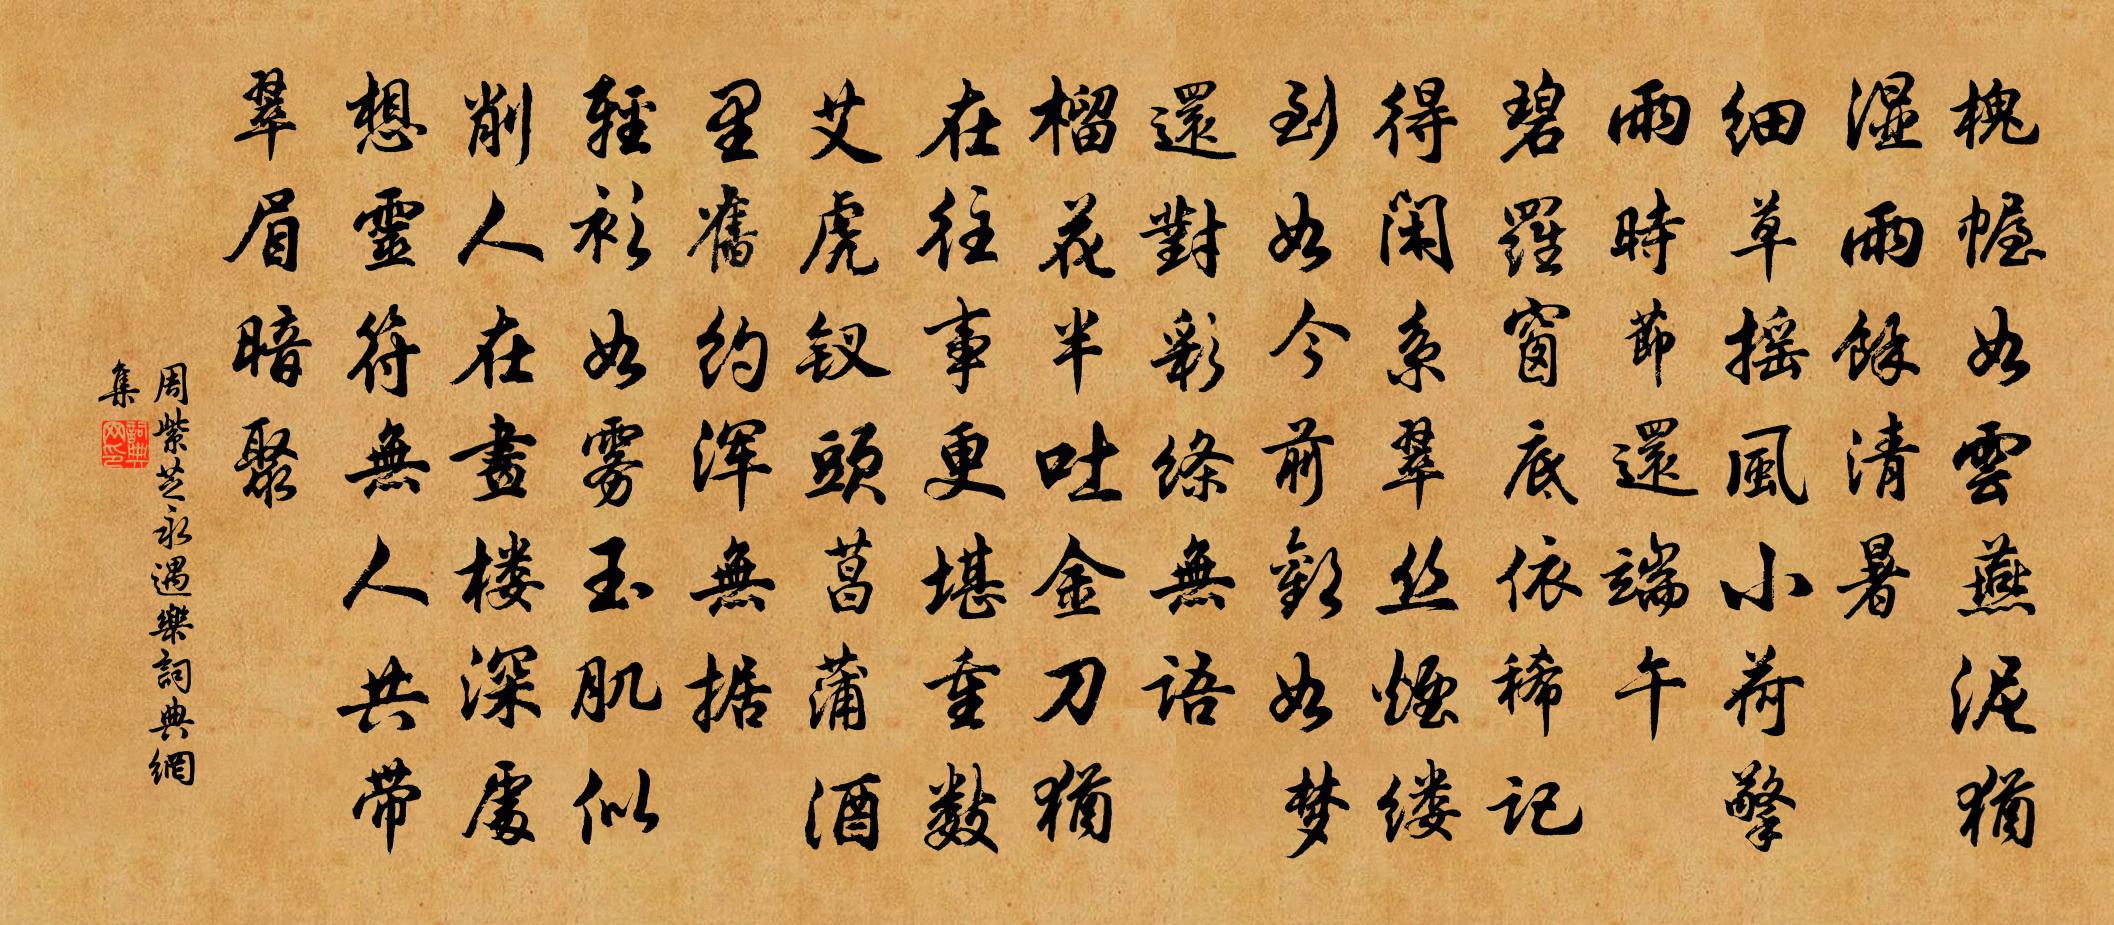 槐幄如雲燕泥猶
濕雨餘清暑
细草摇風小荷擎
雨時節還端午
碧羅窗底依稀記
得閑系翠丝煙缕
到如今前歡如梦
還對彩條無語
榴花半吐金刀猶
在往事更堪重数
艾虎钗頭菖蒲酒
里舊约浑無据
輕衫如雾玉肌似
削人在畫楼深處
想靈符無人共带
翠眉暗聚
周紫芝永遇樂詞典網
集
詞典網印